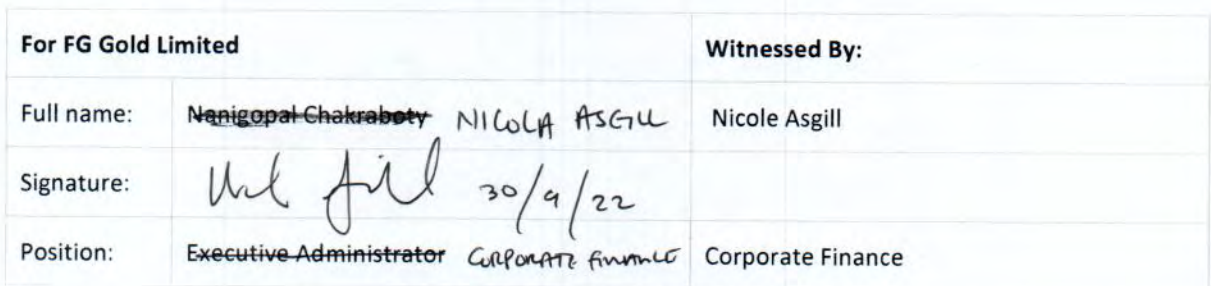 For FG Gold Limited Witnessed By:
Full name: Nanigopal Chakraboty NICOLA ASGILL Nicole Asgill
Signature: 30/9/22
Position: Executive Administrator CORPORATE FINANCE Corporate Finance